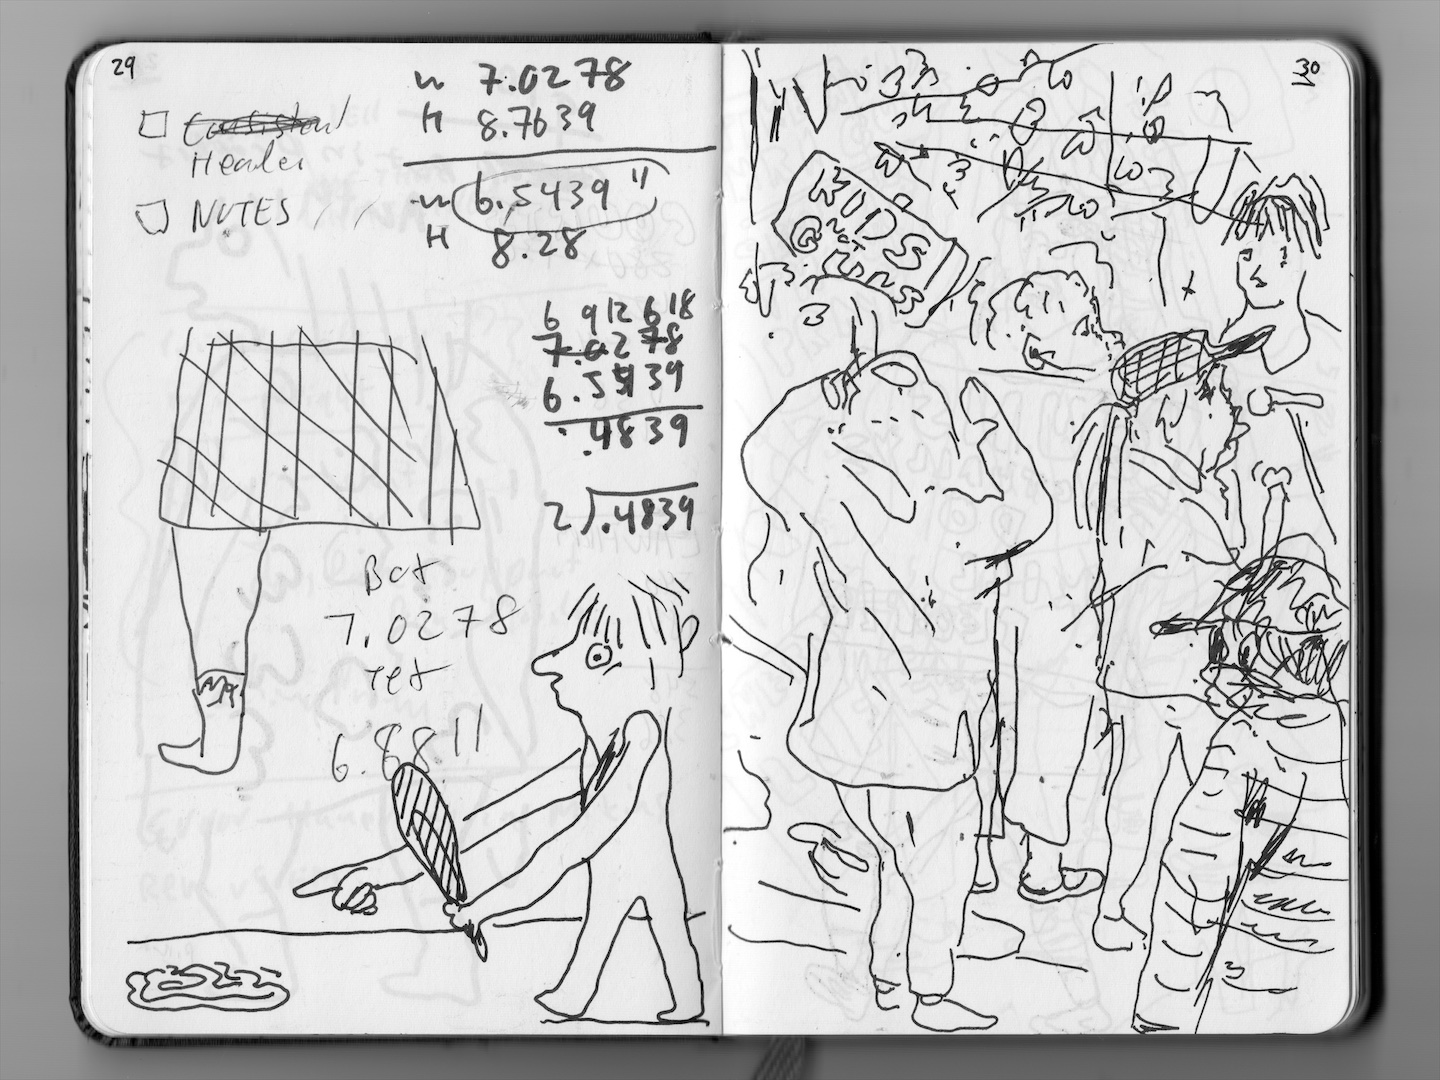 29
Consistent
Header
NOTES
W 7.0278
H 8.7639
W 6.5439"
H 8.28
6 912 618
7.0278
6.5439
.4839
2).4839
Bot
7.0278
6.88"
30
KIDS
NOT
GUNS